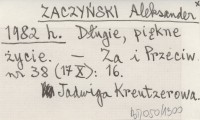 ZACZYŃSKI Aleksander
1982 h. Długie, piękne
życie. — Za i Przeciw
nr 38 (17 X): 16.
Jadwiga Kreutzerowa.